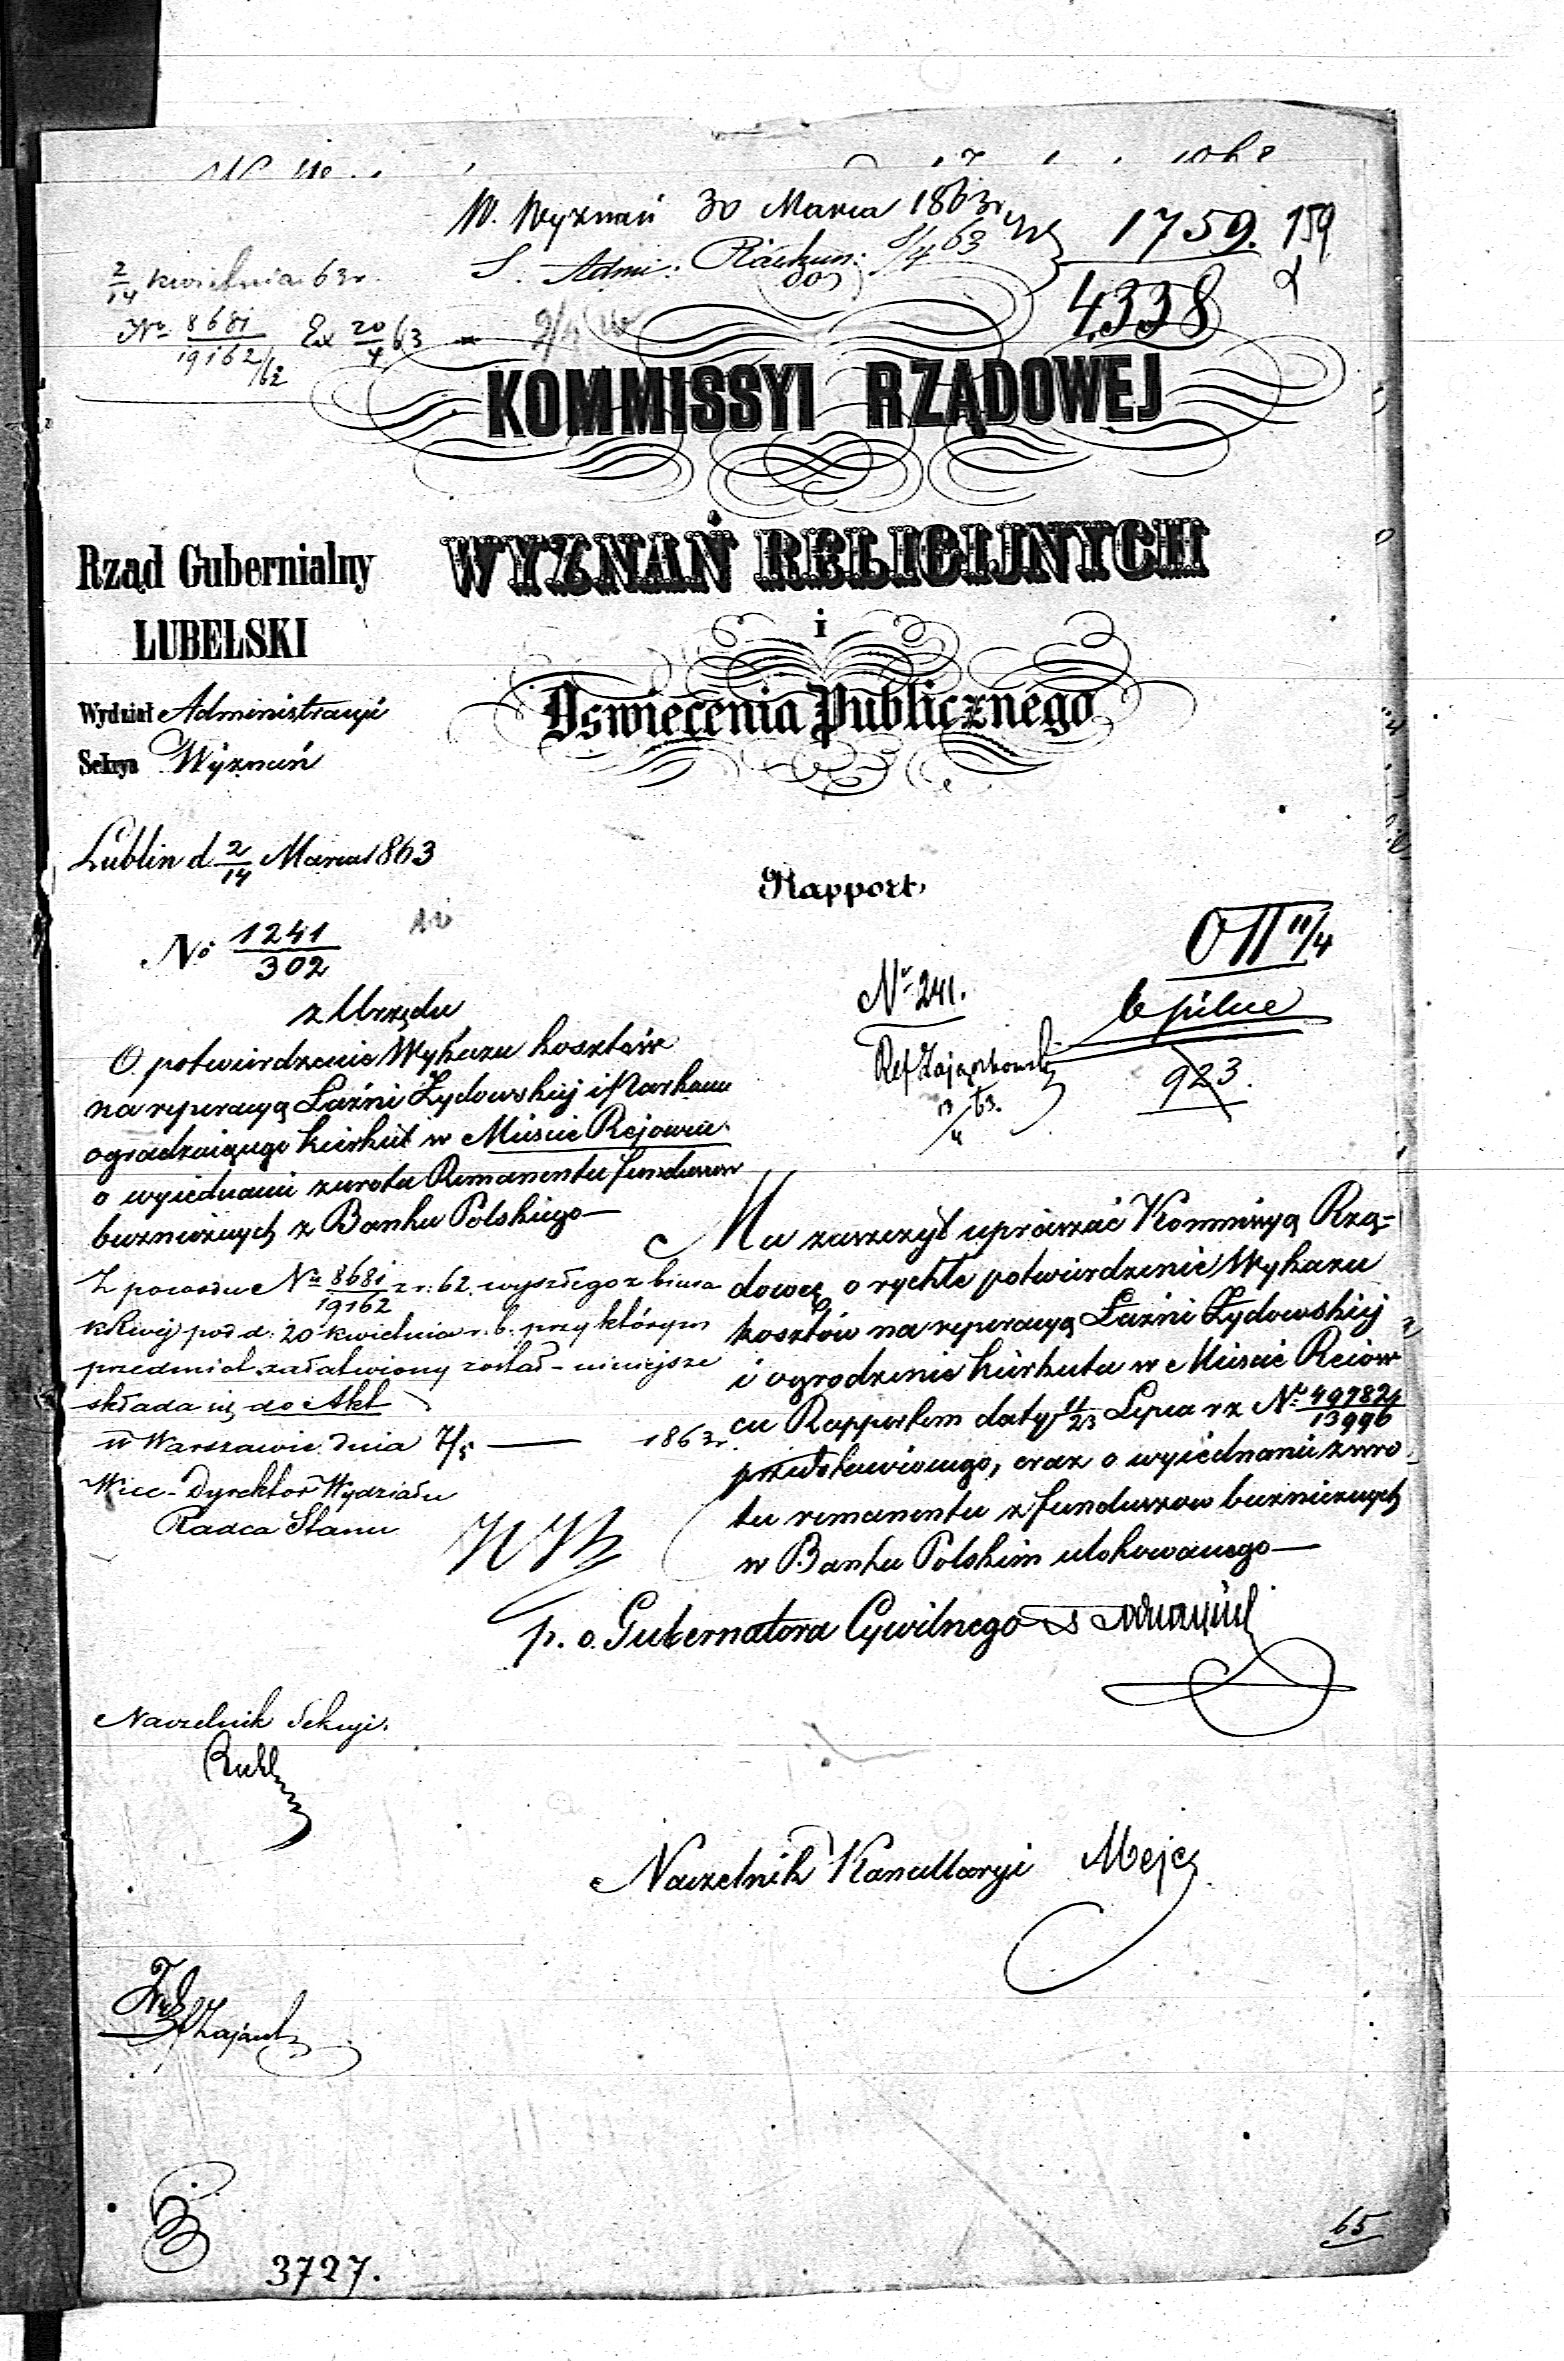 W. Wyznań 30 Marca 1863r.
S. Admi: Rachun: 8/4 63
1759. 159
4338
2/14 kwietnia 63r.
No 8681/19162/62 Ex 20/4 63
KOMMISSYI RZĄDOWEJ
WYZNAŃ RELIGIJNYCH
i
Oświecenia Publicznego
Rząd Gubernialny
LUBELSKI
Wydział Administracyi
Sekcya Wyznań
Lublin d 2/14 Marca 1863
Rapport
No 1241/302
z Urzędu
O potwierdzenie Wykazu kosztów
na reperacyą Łaźni Żydowskiej i Parkanu
ogradzaiącego kirkut w Mieście Rejowcu
o wyiednanie zwrotu Remanentu funduszów
bużnicznych z Banku Polskiego—
No 241.
13/4 63.
OII 11/4
pilne
923.
Z powodu No 8681/19162 z r. 62 wyszłego z biura
KRwej pod d. 20 kwietnia r. b. przy którym
przedmiot załatwiony został – niniejsze
składa się do Akt
w Warszawie dnia 7/5 — 1863r.
Wice-Dyrektor Wydziału
Radca Stanu
Ma zaszczyt upraszać Kommissyą Rzą=
dową o rychłe potwierdzenie Wykazu
kosztów na reperacyą Łaźni Żydowskiej
i ogrodzenie kirkutu w Mieście Reiow
cu Rapportem daty 11/23 Lipca rz No 49782/13996
przedstawionego, oraz o wyiednanie zwro=
tu remanentu z funduszów bużniczych
w Banku Polskim ulokowanego—
p. o. Gubernatora Cywilnego
Naczelnik Sekcyi.
Naczelnik Kancellaryi
3727.
65